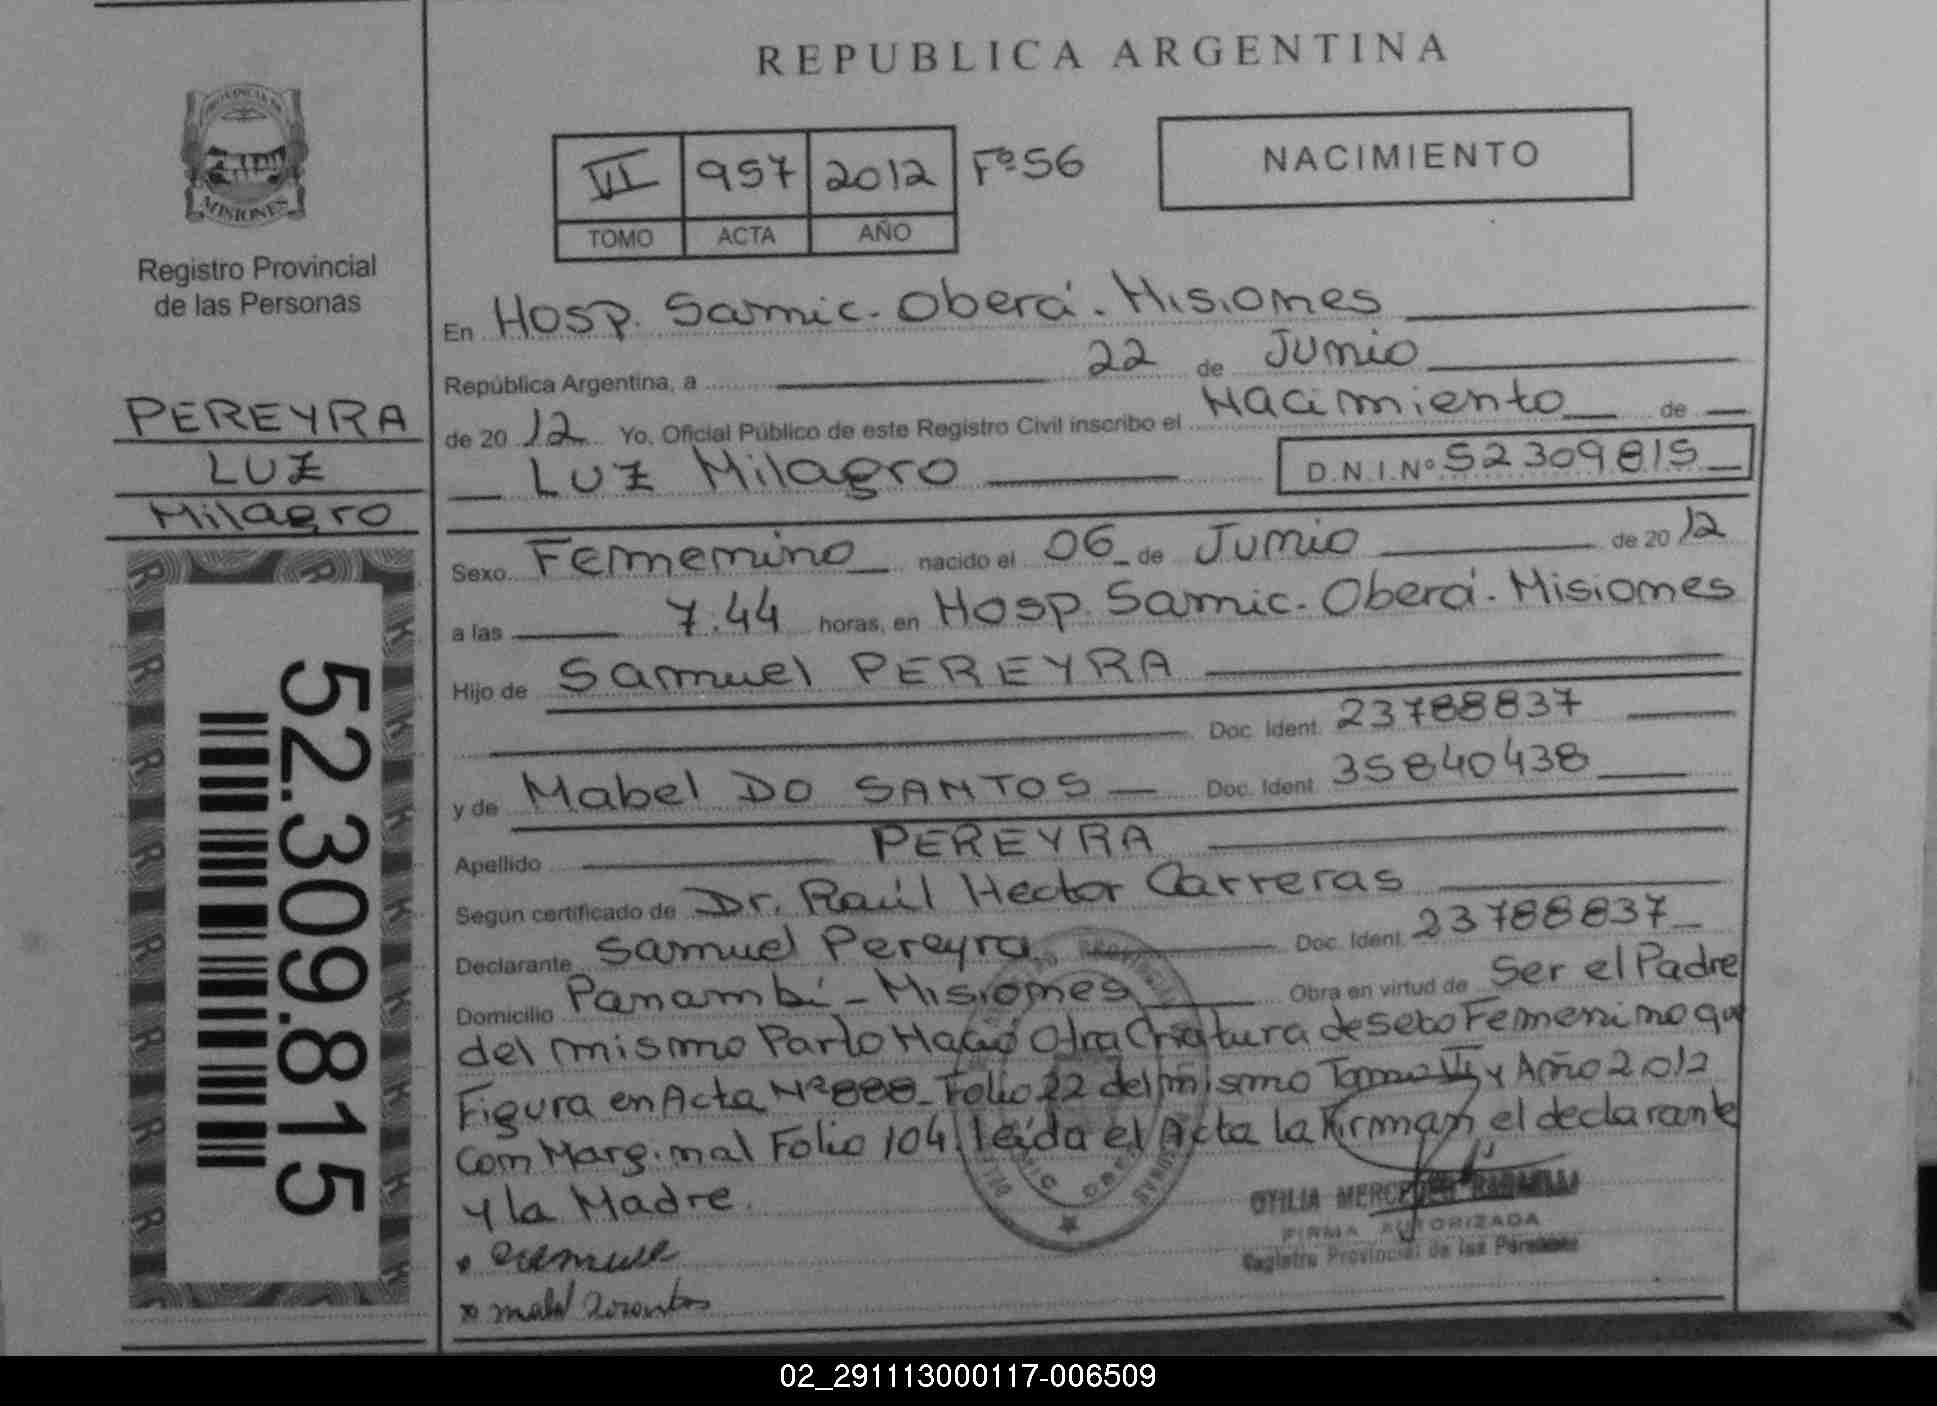 REPUBLICA ARGENTINA
PROVINCIA DE
MISIONES
Registro Provincial
de las Personas
VI 957 2012 Fº 56
TOMO ACTA AÑO
NACIMIENTO
PEREYRA
LUZ
Milagro
52.309.815
En Hosp. Samic. Oberá. Misiones
República Argentina, a 22 de Junio
de 2012 Yo, Oficial Público de este Registro Civil inscribo el Nacimiento de
LUZ Milagro D.N.I.Nº 52309815
Sexo Femenino nacido el 06 de Junio de 2012
a las 7.44 horas, en Hosp. Samic. Oberá. Misiones
Hijo de Samuel PEREYRA
Doc. Ident. 23788837
y de Mabel DO SANTOS Doc. Ident. 35840438
Apellido PEREYRA
Según certificado de Dr. Raúl Hector Carreras
Declarante Samuel Pereyra Doc. Ident. 23788837
Domicilio Panambí - Misiones Obra en virtud de Ser el Padre
del mismo Parto Nació Otra Criatura de sexo Femenino que
Figura en Acta Nº 888 Folio 22 del mismo Tomo VI y Año 2012
Con Marginal Folio 104. leída el Acta la Firman el declarante
y la Madre.
OTILIA MERCEDES
FIRMA AUTORIZADA
Registro Provincial de las Personas
02_291113000117-006509